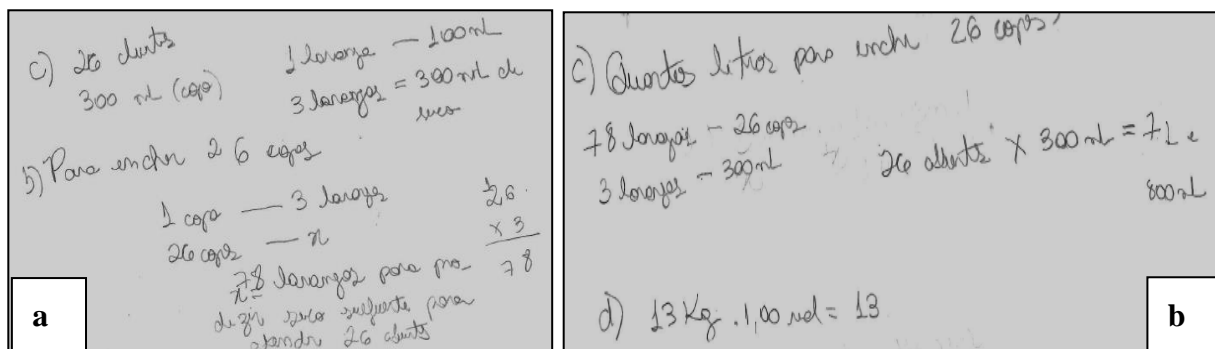 c) 26 clientes
300 ml (copo)
1 laranja — 100 ml
3 laranjas = 300 ml de
suco
b) Para encher 26 copos
1 copo — 3 laranjas
26 copos — x
x = 78 laranjas para pro-
dezir suco suficiente para
atender 26 clients
26
x 3
78
a
c) Quantos litros para encher 26 copos?
78 laranjas - 26 copos
3 laranjas - 300 ml
26 clients X 300 ml = 7 L e
800 ml
d) 13 Kg . 1,00 real = 13
b